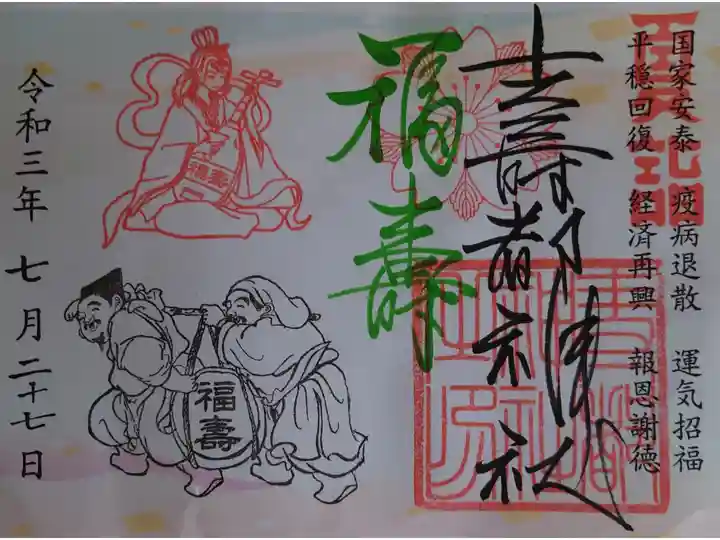 国家安泰 疫病退散 運気招福
平穏回復 経済再興 報恩謝徳
壽都神社
福壽
福壽
福壽
令和三年 七月二十七日